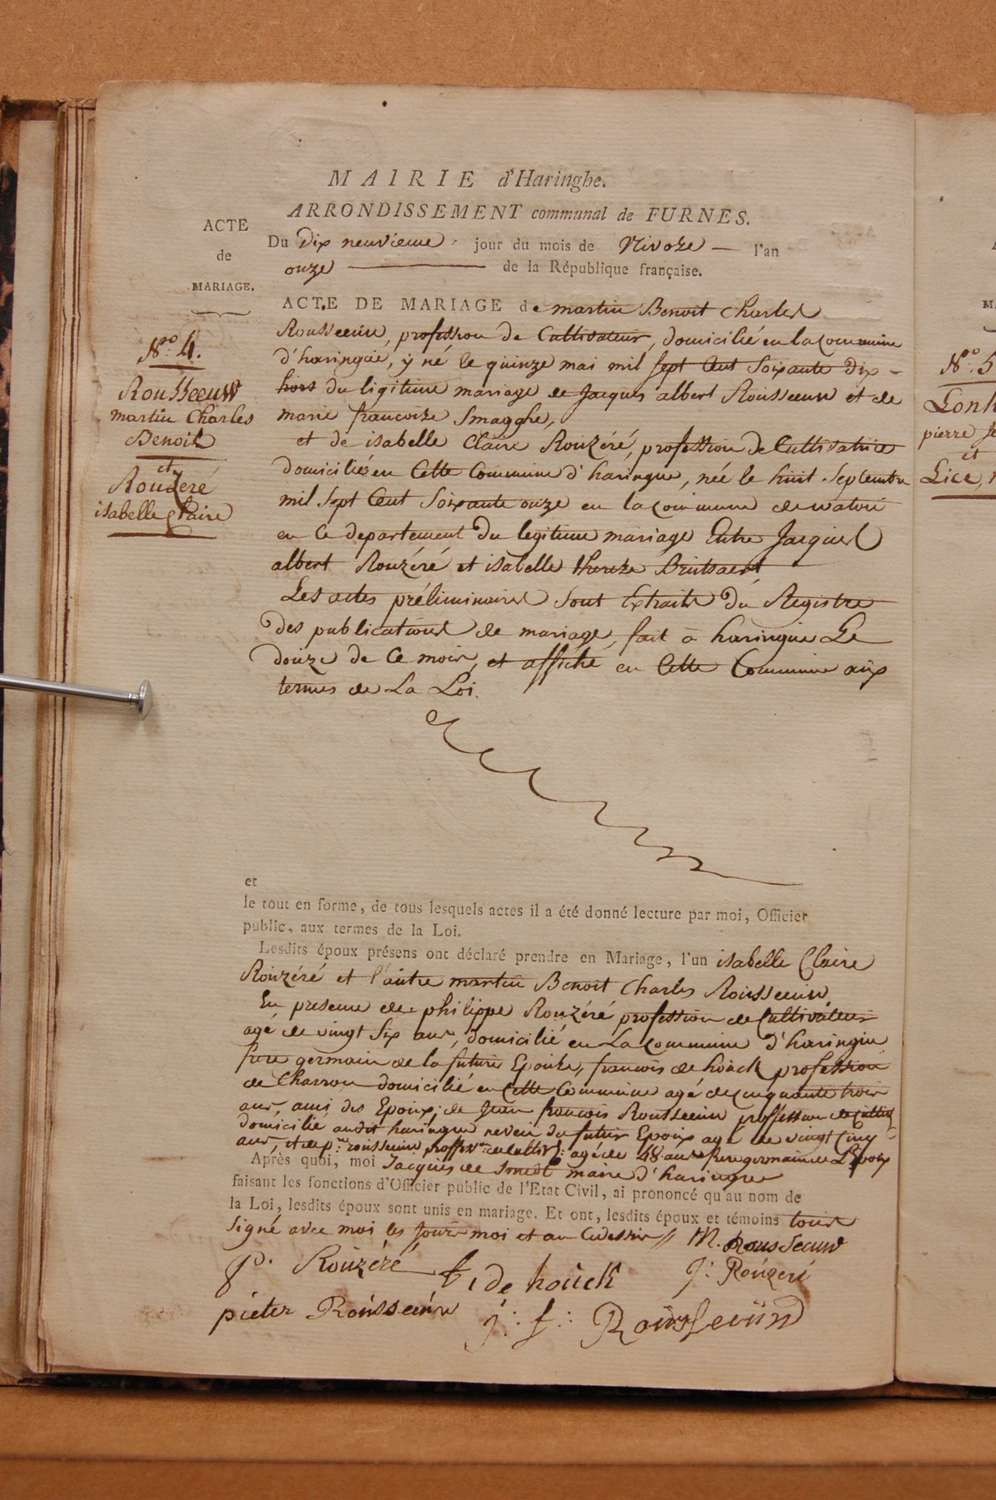 MAIRIE d'Haringhe.
ARRONDISSEMENT communal de FURNES.
ACTE
de
MARIAGE.
Du Dix neuvieme jour du mois de Nivoze — l'an
onze — de la République française.
N.º 4.
Rousseeuw
martin Charles
Benoit
et
Rouzéré
isabelle Claire
ACTE DE MARIAGE de martin Benoit Charles
Rousseeuw, profession de Cultivateur, domicilié en la Commune
d'haringue, y né le quinze mai mil sept Cent Soixante Dix-
hors du ligitime mariage de Jacques albert Rousseeuw et de
marie francoize Smagghe,
et de isabelle Claire Rouzéré, profession de Cultivatrice
domiciliés en Cette Commune d'haringue, née le huit Septembre
mil Sept Cent Soixante onze en la Commune de watou
en Ce departement du legitime mariage Entre Jacques
albert Rouzéré et isabelle thereze
Les actes préliminaires Sont Extraits du Registre
Des publications de mariage, fait à haringue Le
douze de Ce mois, et affiché en Cette Commune aux
termes de La Loi.
et
le tout en forme, de tous lesquels actes il a été donné lecture par moi, Officier
public, aux termes de la Loi.
Lesdits époux présens ont déclaré prendre en Mariage, l'un isabelle Claire
Rouzéré et l'autre martin Benoit Charles Rousseeuw.
En presence de philippe Rouzéré profession de Cultivateur
agé de vingt Six ans, domicilié en La Commune d'haringue
frere germain de la future Epouse, francois de houck profession
de Charron domicilié en Cette Commune agé de Cinquante trois
ans, ami des Epoux, de Jean francois Rousseeuw profession de Cultiv
domicilié audit haringue neveu du futur Epoux agé de vingt Cinq
ans, et de p. rousseeuw profess.on cultiv: agé de 48 ans frere germain de L'Epoux
Après quoi, moi Jacques de Smedt maire d'haringue
faisant les fonctions d'Officier public de l'Etat Civil, ai prononcé qu'au nom de
la Loi, lesdits époux sont unis en mariage. Et ont, lesdits époux et témoins tous
Signé avec moi les Jour moi et an Cidessus // M. Rousseeuw
p. Rouzéré f, de houck J: Rouzeré
pieter Rousseeuw j: f: Rousseeuw
N.º 5
et